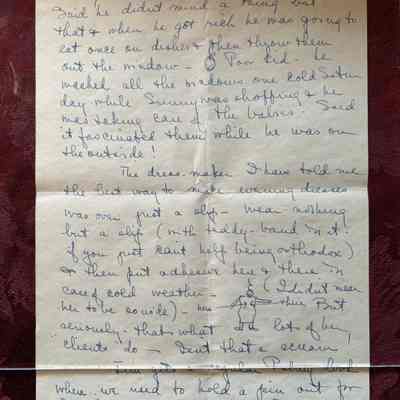 Said he didn't mind a thing but
that & when he got rich he was going to
eat once on dishes & then throw them
out the window — Poor kid. He
washed all the windows one cold Satur
day while Sunny was shopping & he
was taking care of the babies. Said
it fascinated them while he was on
the outside!
The dress-maker I have told me
the best way to make evening dresses
was over just a slip — wear nothing
but a slip (with teddy-band in it
if you just can't help being orthodox)
& then put adhesive here & there in
case of cold weather — (I didn't mean
her to be so wide) — here there But
seriously — that's what lots of her
clients do — Isn't that a scream!
book
where we used to hold a pin out for